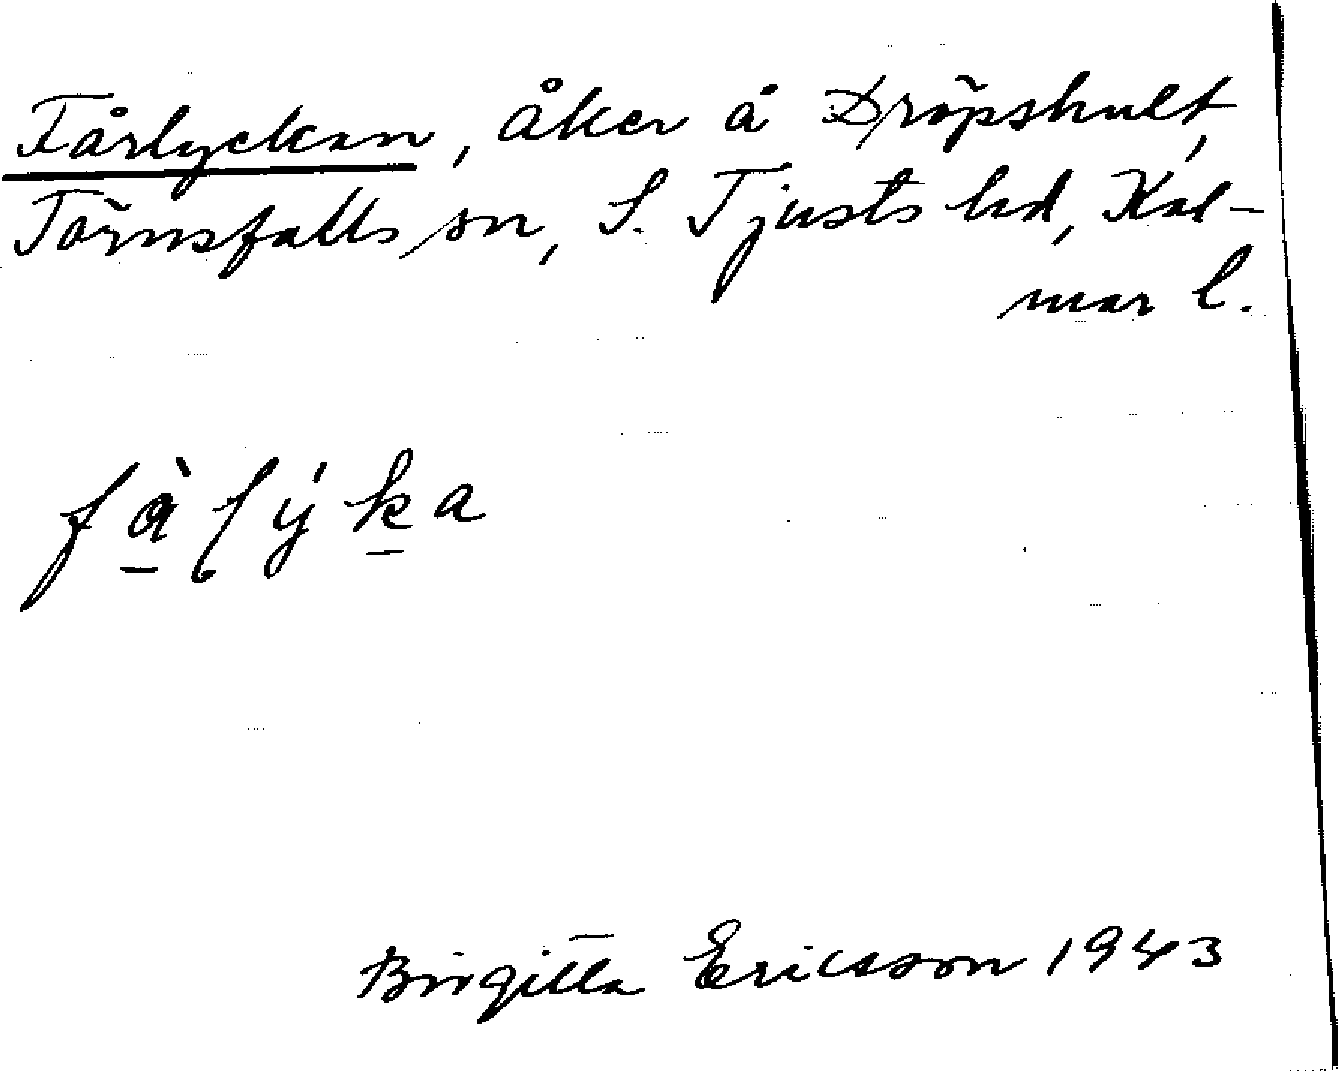 Fårlyckan, åker å Dröpshult,
Törnsfalls sn, S. Tjusts hd, Kal-
mar l.
fàlýka
Birgitta Ericsson 1943